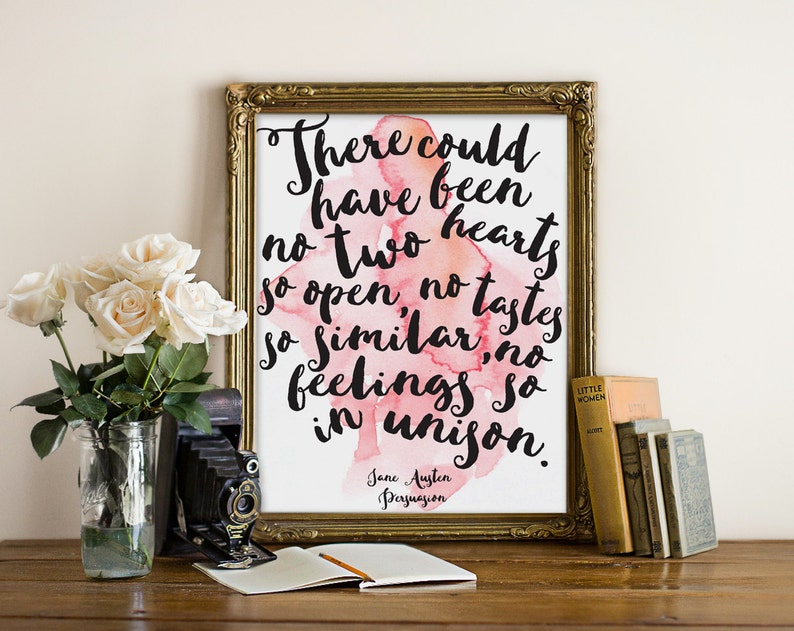 There could
have been
no two hearts
so open, no tastes
so similar, no
feelings so
in unison.
Jane Austen
Persuasion
LITTLE
WOMEN
ALCOTT